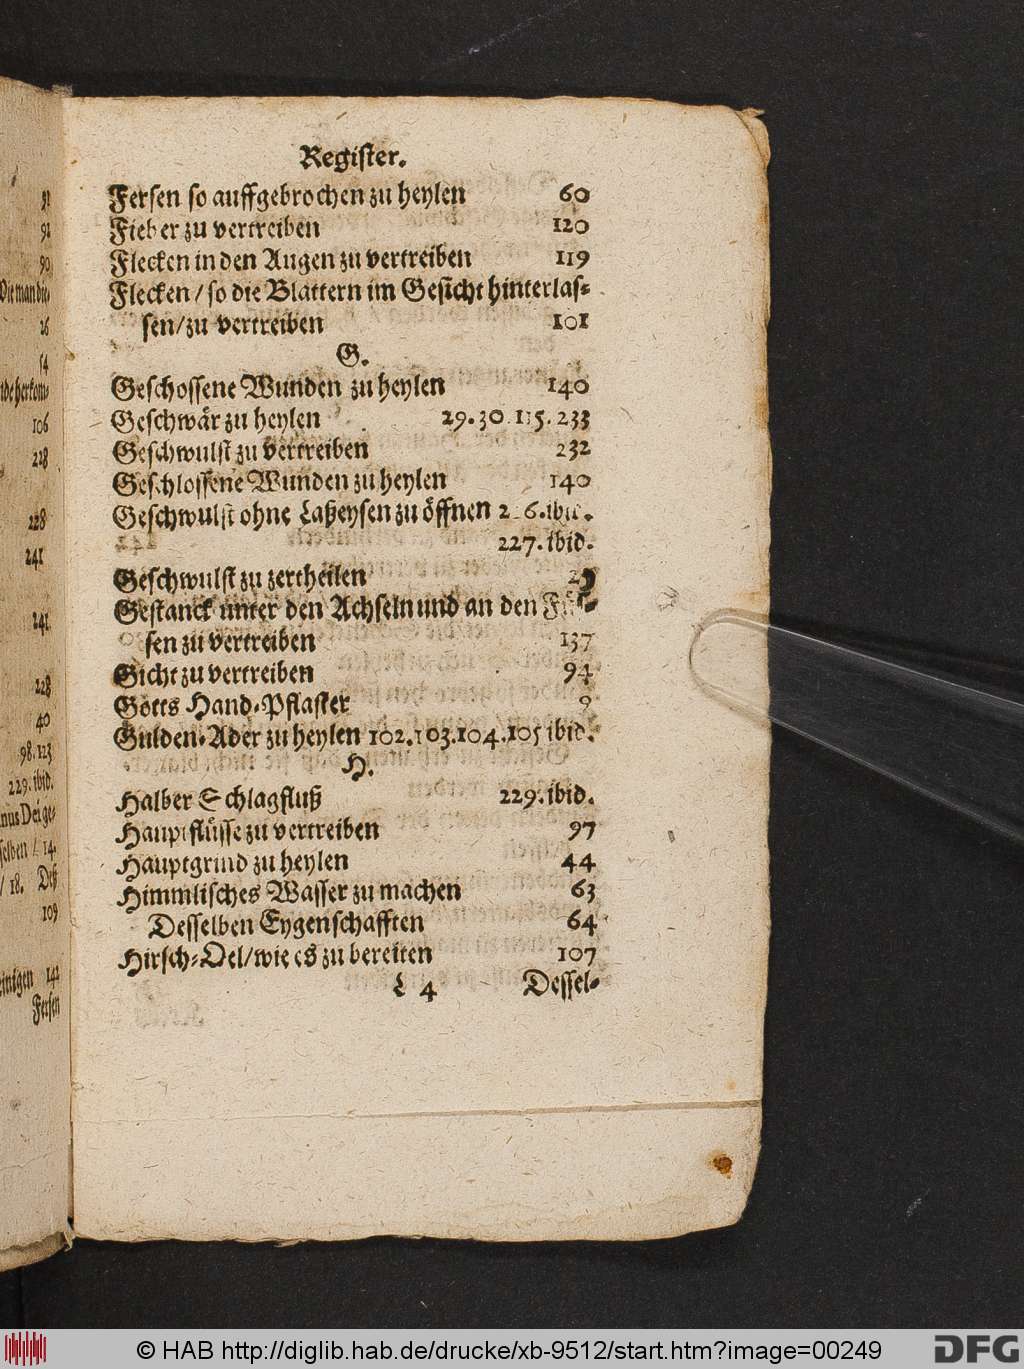 Register.
Fersen so auffgebrochen zu heylen 60
Fieber zu vertreiben 120
Flecken in den Augen zu vertreiben 119
Flecken / so die Blattern im Gesicht hinterlas-
sen/zu vertreiben 101
G.
Geschossene Wunden zu heylen 140
Geschwär zu heylen 29.30.115.233
Geschwulst zu vertreiben 232
Geschlossene Wunden zu heylen 140
Geschwulst ohne Laßeysen zu öffnen
227.ibid.
Geschwulst zu zertheilen
Gestanck unter den Achseln und an den Füs-
sen zu vertreiben 137
Gicht zu vertreiben 94
Gotts Hand-Pflaster 9
Gulden-Ader zu heylen 102.103.104.105 ibid.
H.
Halber Schlagfluß 229.ibid.
Hauptflüsse zu vertreiben 97
Hauptgrind zu heylen 44
Himmlisches Wasser zu machen 63
Desselben Eygenschafften 64
Hirsch-Oel/wie es zu bereiten 107
L 4 Dessel-
91
90
106
228
228
241
241
228
40
98.123
229.ibid.
selben / 14.
/ 18. Deß
109
einigen 142
Fersen
© HAB http://diglib.hab.de/drucke/xb-9512/start.htm?image=00249
DFG